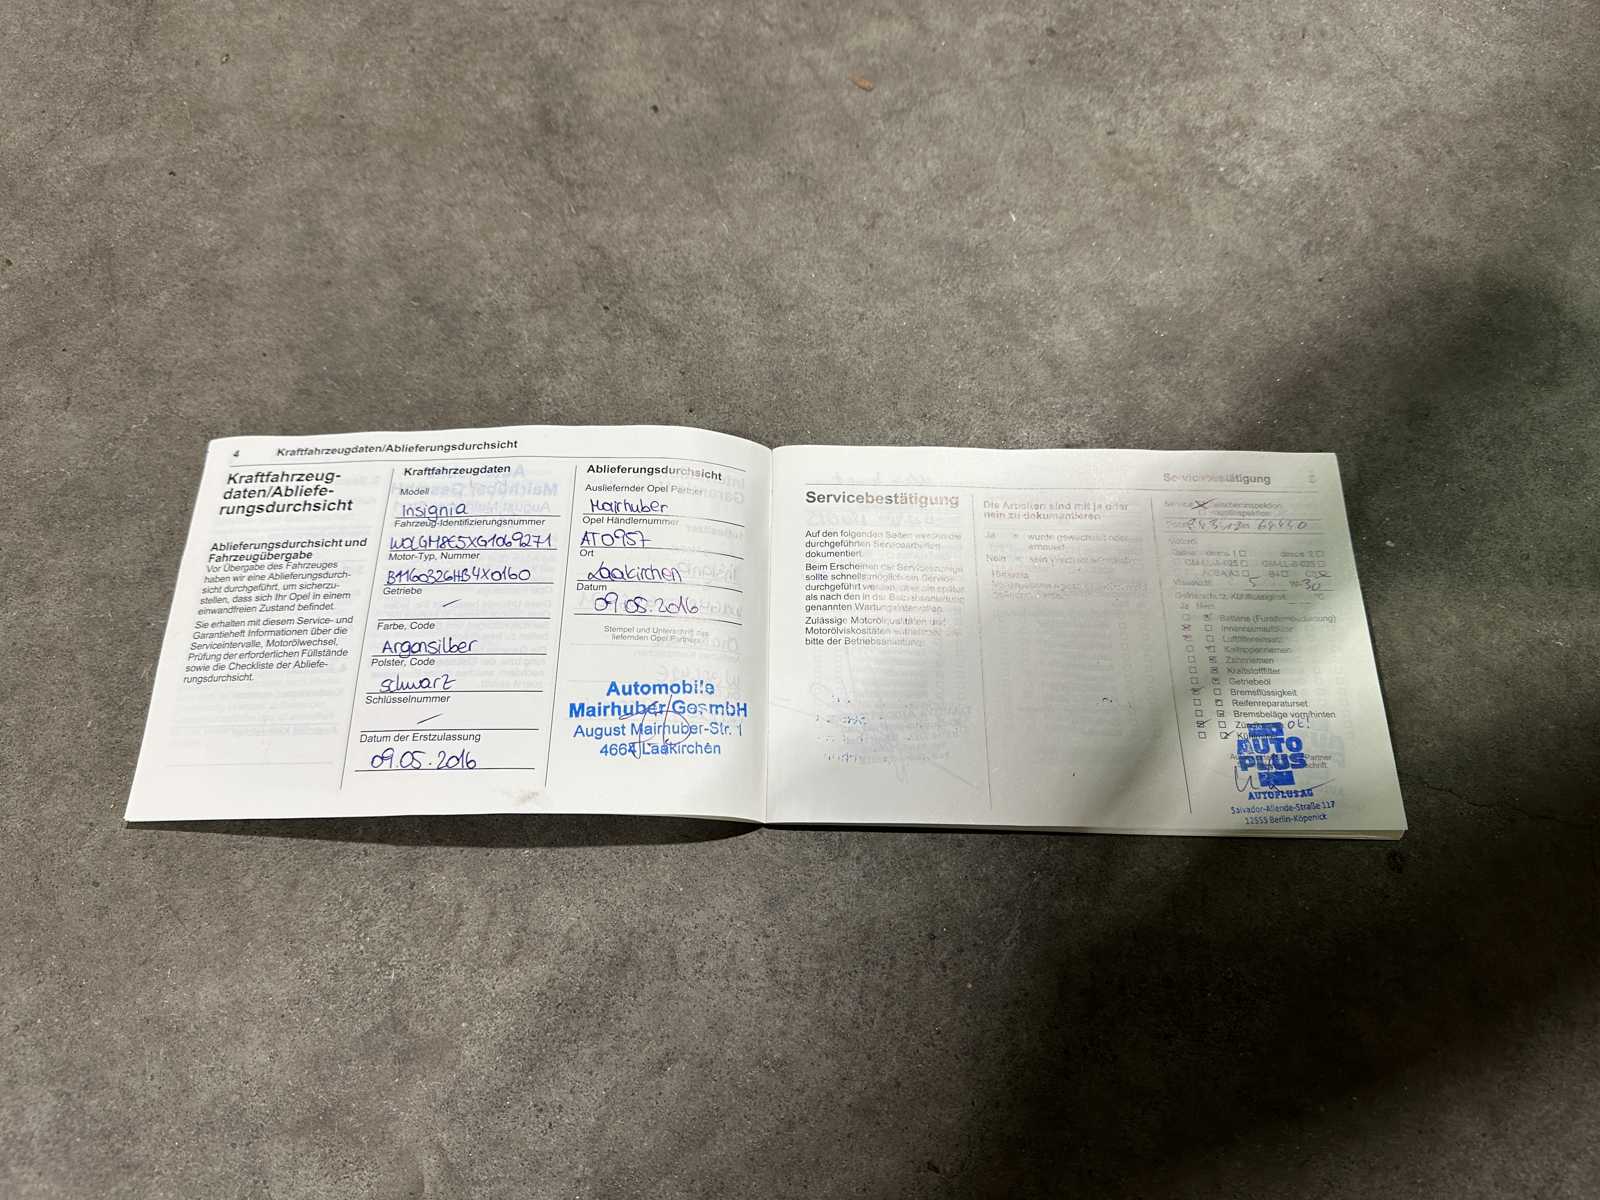 4 Kraftfahrzeugdaten/Ablieferungsdurchsicht
Kraftfahrzeug-
daten/Abliefe-
rungsdurchsicht
Ablieferungsdurchsicht und
Fahrzeugübergabe
Vor Übergabe des Fahrzeuges
haben wir eine Ablieferungsdurch-
sicht durchgeführt, um sicherzu-
stellen, dass sich Ihr Opel in einem
einwandfreien Zustand befindet.
Sie erhalten mit diesem Service- und
Garantieheft Informationen über die
Serviceintervalle, Motorölwechsel,
Prüfung der erforderlichen Füllstände
sowie die Checkliste der Abliefe-
rungsdurchsicht.
Kraftfahrzeugdaten
Modell
Insignia
Fahrzeug-Identifizierungsnummer
W0LGM8E5XG1069271
Motor-Typ, Nummer
Getriebe
Farbe, Code
Argonsilber
Polster, Code
schwarz
Schlüsselnummer
Datum der Erstzulassung
09.05.2016
Ablieferungsdurchsicht
Ausliefernder Opel Partner
Mairhuber
Opel Händlernummer
AT0957
Ort
Laakirchen
Datum
09.05.2016
Stempel und Unterschrift des
liefernden Opel Partners
Automobile
Mairhuber GesmbH
August Mairhuber-Str. 1
4664 Laakirchen
Servicebestätigung
Servicebestätigung
Auf den folgenden Seiten werden die
durchgeführten Servicearbeiten
dokumentiert.
Beim Erscheinen der Serviceanzeige
sollte schnellstmöglich ein Service
durchgeführt werden, aber am
als nach den in der Betriebsanleitung
genannten Wartungsintervallen.
Zulässige Motorölqualitäten und
Motorölviskositäten entnehmen
bitte der Betriebsanleitung.
Die Arbeiten sind mit ja oder
nein zu dokumentieren
Ja wurde gewechselt oder
erneuert
Nein
Service
Ja Nein
Batterie (Fernbedienung)
Innenraumluftfilter
Luftfiltereinsatz
Keilrippenriemen
Zahnriemen
Kraftstofffilter
Getriebeöl
Bremsflüssigkeit
Reifenreparaturset
Bremsbeläge vorn/hinten
AUTO
PLUS
AUTOPLUS AG
Salvador-Allende-Straße 117
12555 Berlin-Köpenick